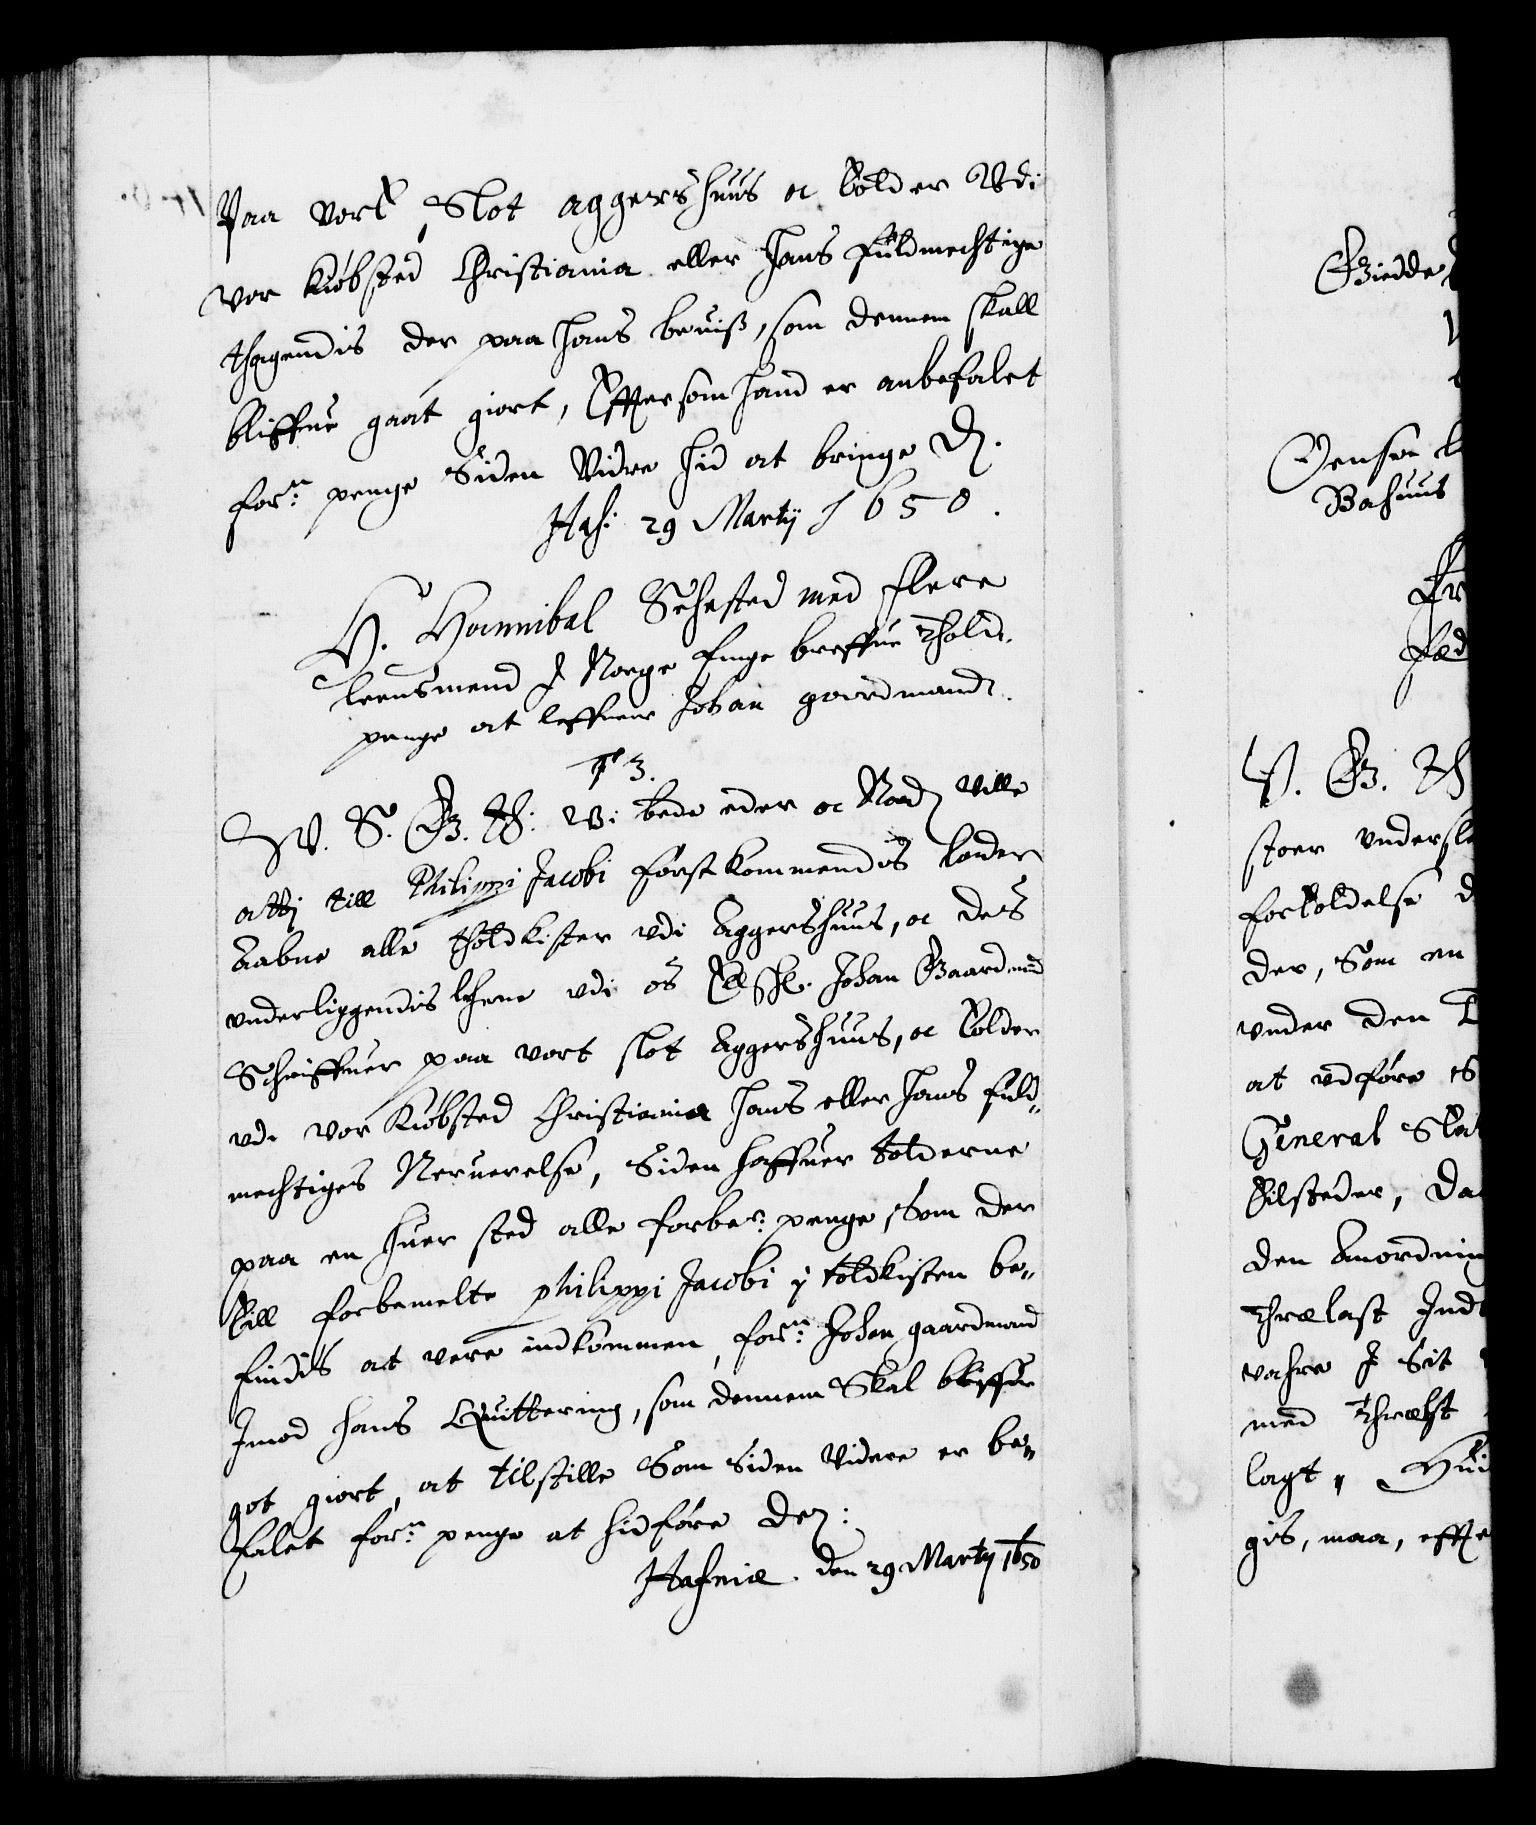 Paa vort Slot aggershuus oc tolder Udi
vor Kiøbsted Christiania eller hans fuldmechtige
thagendis der paa hans beviss, som dennem skall
bliffue gaat giort, Efftersom hand er anbefalet
forn: penge siden Vidre hid at bringe D.
Hafn: 29 Martij 1650.
H. Hannibal Sehested med flere
Leensmend I Norge finge breffue Thold-
penge at leffuere Johan gaardmand.
T 3.
W. S. G. T: Wi bede eder oc Naad: ville
atj till Philippi Jacobi førstkommendis lader
aabne alle tholdkister udi Aggershuus, oc des
underliggendis lehne udi os Elschl. Johan Gaardmand
Schriffuer paa vort slot Aggershuus, oc tolder
udi vor Kiøbsted Christiania hans eller hans fuld-
mechtiges Neruerelse, siden haffuer tolderne
paa en huer sted alle forben: penge, som der
till forbemelte philippi Jacobi i toldkisten be-
findis at vere indkommen, forn: Johan gaardmand
Imod hans Quittering, som dennem skal bliffue
got giort, at tilstille som siden Videre er be-
falet forn: penge at hidføre Der:
Hafniæ. den 29 Martij 1650
Giedde
Jenss
Bahuus
Fr
fæd
V. G. T
stoer undersl
forholdelse d
der, som en
under den T
at udføre
General Stat
tilsteder, da
den Anordnin
Thrælast Ind
vahre I sit
med Thrælst
lagt, Hui
gis, maa, effte